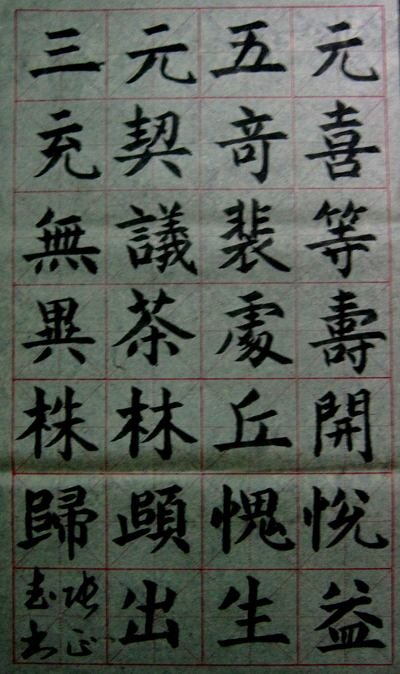 元喜等壽開悅益
五竒裴處丘愧生
元契議茶林頤出
三充無異株歸